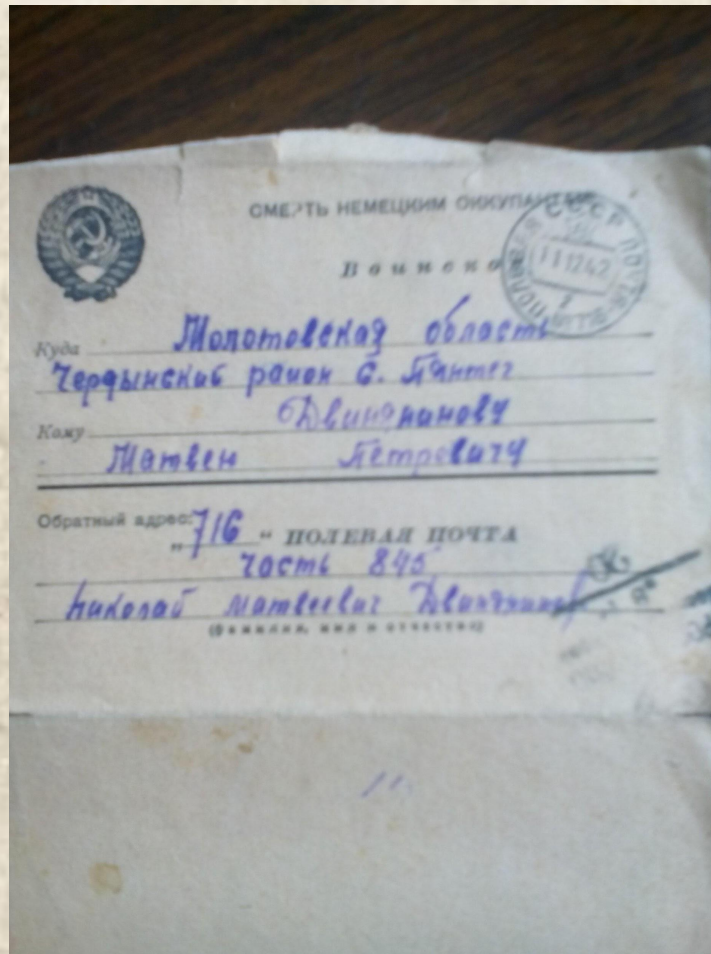 СМЕРТЬ НЕМЕЦКИМ ОККУПАНТАМ
Воинское
СССР ПОЛЕВАЯ ПОЧТА
11 12 42
Куда Молотовская область
Чердынский район С. Пянтег
Кому Двинянинову
Матвею Петровичу
Обратный адрес:
„716“ ПОЛЕВАЯ ПОЧТА
часть 845
Николай Матвеевич Двинянинов
(Фамилия, имя и отчество)